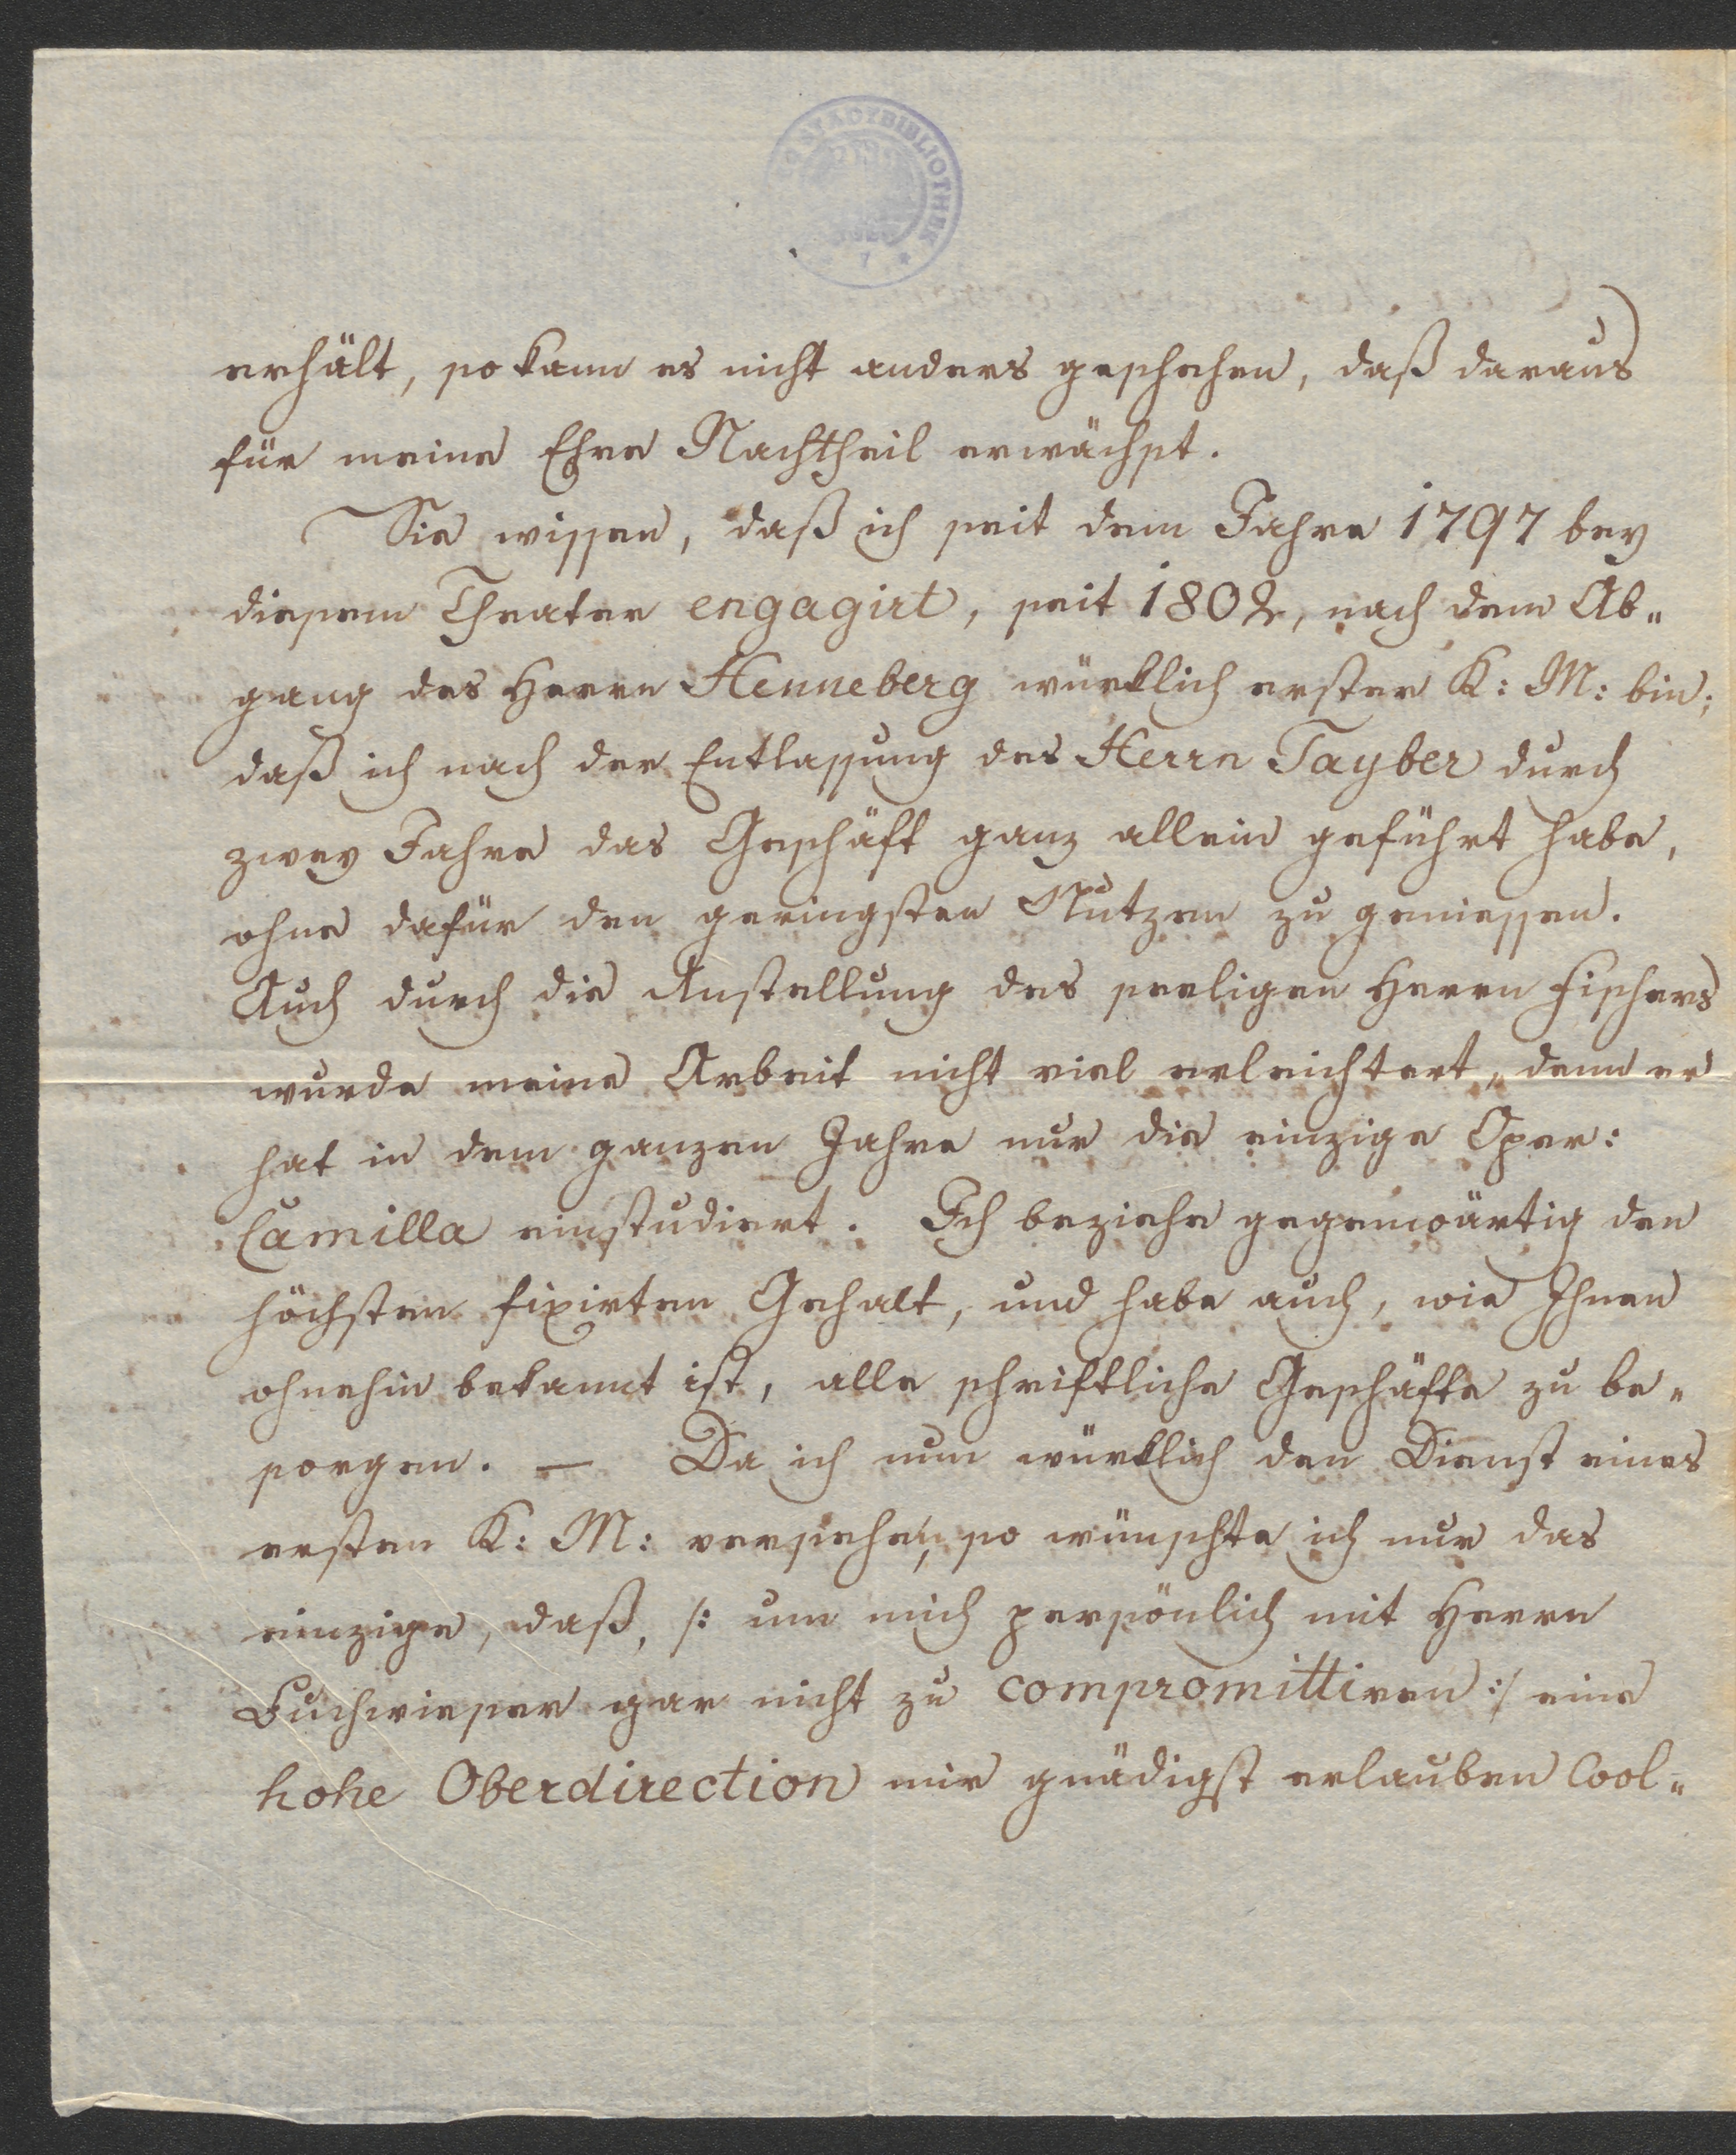 STADTBIBLIOTHEK
erhält, so kann es nicht anders geschehen, daß daraus
für meine Ehre Nachtheil erwächst.
Sie wissen, daß ich seit dem Jahre 1797 bey
diesem Theater engagirt, seit 1802, nach dem Ab„
gang des Herrn Henneberg würklich erster K: M: bin;
daß ich nach der Entlassung des Herrn Tayber durch
zwey Jahre das Geschäft ganz allein geführt habe,
ohne dafür den geringsten Nutzen zu geniessen.
Auch durch die Anstellung des seeligen Herrn Fischers
wurde meine Arbeit nicht viel erleichtert, denn er
hat in dem ganzen Jahre nur die einzige Oper:
Camilla einstudiert. Ich beziehe gegenwärtig den
höchsten fixirten Gehalt, und habe auch, wie Ihnen
ohnehin bekannt ist, alle schriftliche Geschäfte zu be„
sorgen. — Da ich nun würklich den Dienst eines
ersten K: M: versehe, so wünschte ich nur das
einzige, daß, /: um mich persönlich mit Herrn
Buchwieser gar nicht zu compromittiren :/ eine
hohe Oberdirection mir gnädigst erlauben wol„